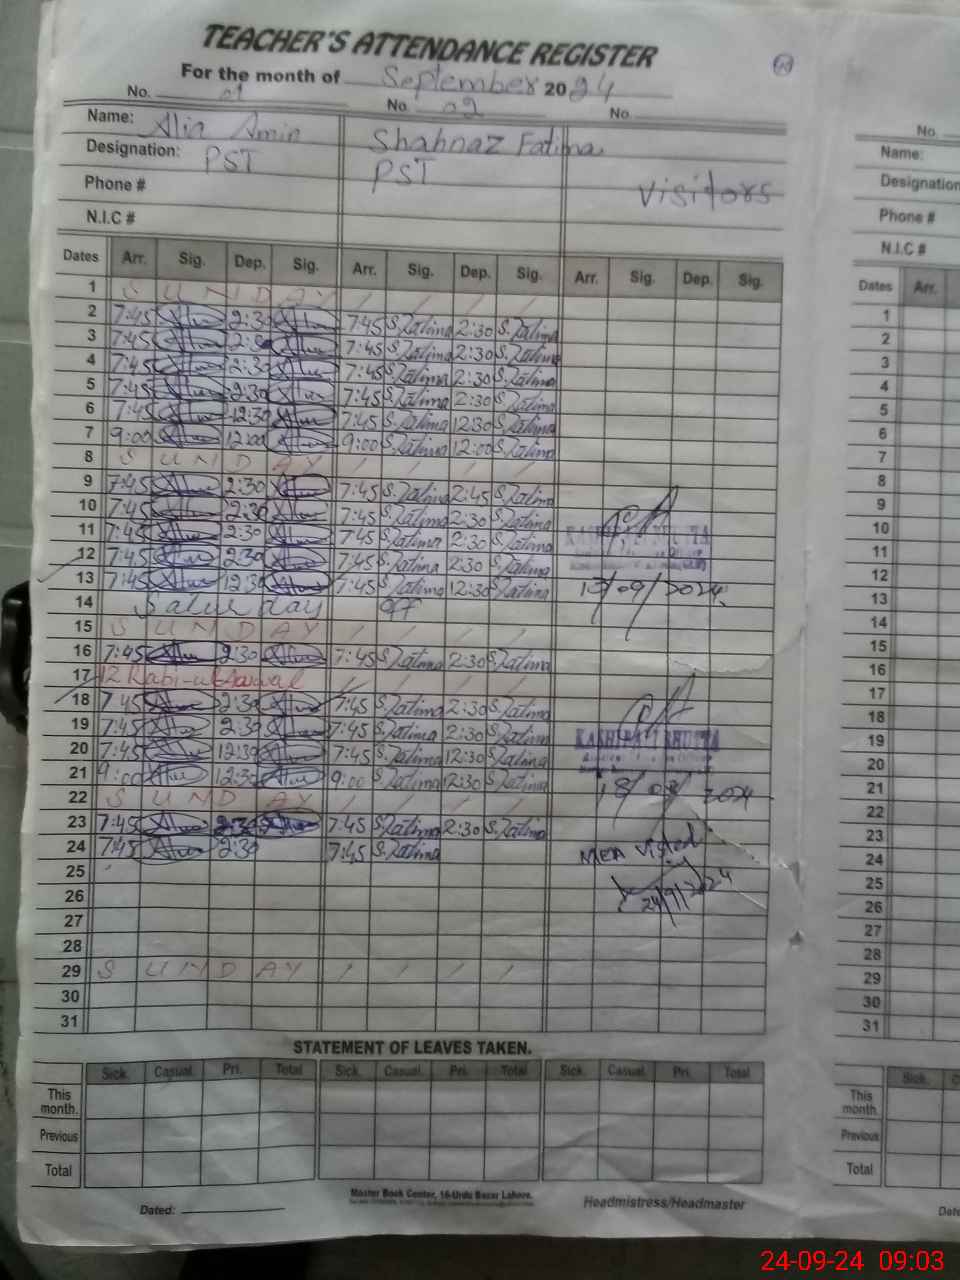 TEACHER'S ATTENDANCE REGISTER
For the month of September 2024
No. 01 No. 02 No.
Name: Alia Amin Shahnaz Fatima
Designation: PST PST Visitors
Phone #
N.I.C #
Dates Arr. Sig. Dep. Sig. Arr. Sig. Dep. Sig. Arr. Sig. Dep. Sig.
1 SUNDAY / / / /
2 7:45 2:30 7:45 S.Fatima 2:30 S.Fatima
3 7:45 2:30 7:45 S.Fatima 2:30 S.Fatima
4 7:45 2:30 7:45 S.Fatima 2:30 S.Fatima
5 7:45 2:30 7:45 S.Fatima 2:30 S.Fatima
6 7:45 12:30 7:45 S.Fatima 12:30 S.Fatima
7 9:00 12:00 9:00 S.Fatima 12:00 S.Fatima
8 SUNDAY / / / /
9 7:45 2:30 7:45 S.Fatima 2:45 S.Fatima
10 7:45 2:30 7:45 S.Fatima 2:30 S.Fatima
11 7:45 2:30 7:45 S.Fatima 2:30 S.Fatima
12 7:45 2:30 7:45 S.Fatima 2:30 S.Fatima
13 7:45 12:30 7:45 S.Fatima 12:30 S.Fatima 13/09/2024
14 Saturday off
15 SUNDAY / / / /
16 7:45 2:30 7:45 S.Fatima 2:30 S.Fatima
17 12 Rabi-ul-Aawal / / / /
18 7:45 2:30 7:45 S.Fatima 2:30 S.Fatima
19 7:45 2:30 7:45 S.Fatima 2:30 S.Fatima
20 7:45 12:30 7:45 S.Fatima 12:30 S.Fatima
21 9:00 12:30 9:00 S.Fatima 12:30 S.Fatima 18/09/2024
22 SUNDAY / / / /
23 7:45 2:30 7:45 S.Fatima 2:30 S.Fatima
24 7:45 2:30 7:45 S.Fatima MEA Visited
25 24/9/2024
26
27
28
29 SUNDAY / / / /
30
31
STATEMENT OF LEAVES TAKEN.
Sick. Casual. Pri. Total Sick. Casual. Pri. Total Sick. Casual. Pri. Total
This month.
Previous
Total
Master Book Center, 16-Urdu Bazar Lahore.
Dated: Headmistress/Headmaster
No.
Name:
Designation
Phone #
N.I.C #
Dates Arr.
1
2
3
4
5
6
7
8
9
10
11
12
13
14
15
16
17
18
19
20
21
22
23
24
25
26
27
28
29
30
31
Sick.
This month.
Previous
Total
24-09-24 09:03